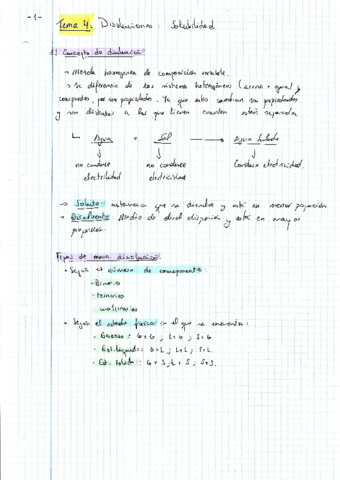 -1-
Tema 4. Disoluciones: Solubilidad
1) Concepto de disolución
→ Mezcla homogénea de composición variable.
→ Se diferencia de los sistemas heterogéneos (arena + agua) y
compuestos, por sus propiedades. Ya que estos cambian sus propiedades
y son distintas a las que tienen cuando están separados
↳ Agua + Sal → Agua Salada
no conduce no conduce Conduce electricidad.
electricidad electricidad
→ Soluto: sustancia que se disuelve y está en menor proporción
→ Disolvente: Medio de disolución y está en mayor
proporción.
Tipos de disolución
• Según el número de componentes:
- Binarias
- ternarias
• Según el estado físico en el que se encuentra:
- Gaseoso: G+G; L+G; S+G
- Est. líquido: G+L; L+L; S+L.
- Est. sólido: G+S; L+S; S+S.